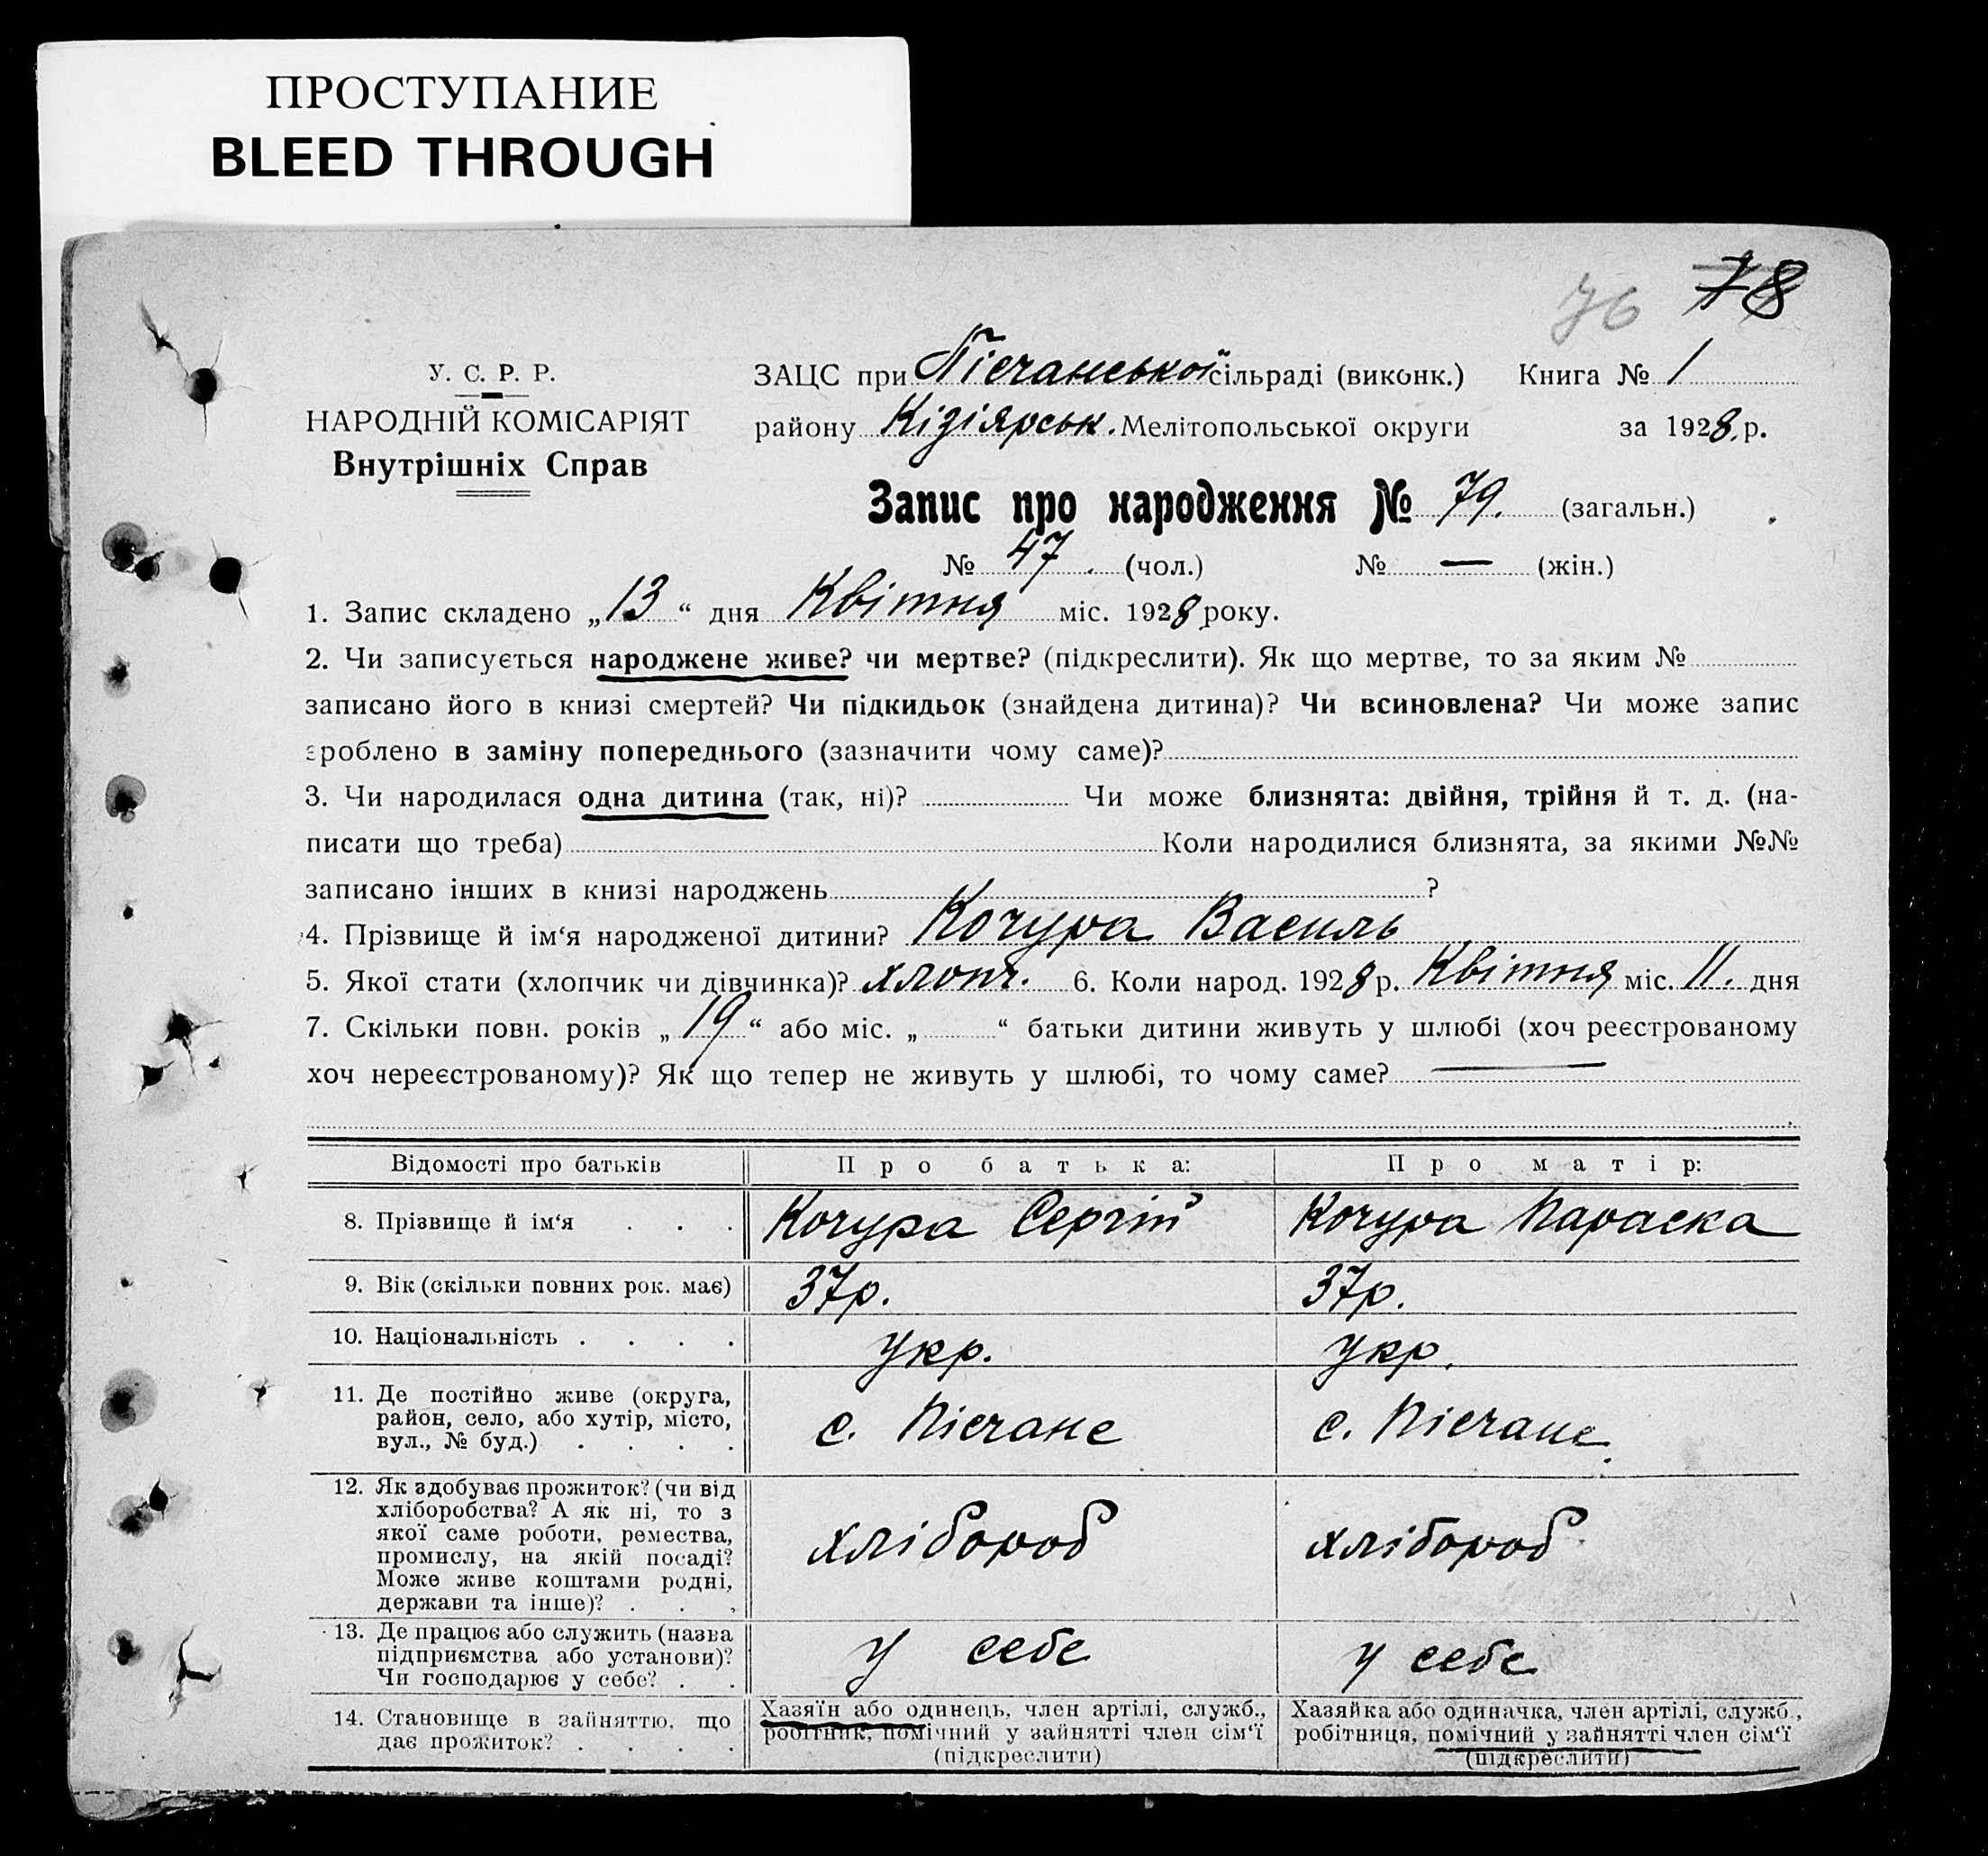 ПРОСТУПАНИЕ
BLEED THROUGH
76 78
У. С. Р. Р.
НАРОДНІЙ КОМІСАРІЯТ
Внутрішніх Справ
ЗАЦС при Пісчанської сільраді (виконк.) Книга № 1
району Кізіярськ. Мелітопольської округи за 1928 р.
Запис про народження № 79. (загальн.)
№ 47. (чол.) № — (жін.)
1. Запис складено „13“ дня Квітня міс. 1928 року.
2. Чи записується народжене живе? чи мертве? (підкреслити). Як що мертве, то за яким №
записано його в книзі смертей? Чи підкидьок (знайдена дитина)? Чи всиновлена? Чи може запис
зроблено в заміну попереднього (зазначити чому саме)?
3. Чи народилася одна дитина (так, ні)? Чи може близнята: двійня, трійня й т. д. (на-
писати що треба) Коли народилися близнята, за якими №№
записано інших в книзі народжень ?
4. Прізвище й ім‘я народженої дитини? Кочура Василь
5. Якої стати (хлопчик чи дівчинка)? хлопч. 6. Коли народ. 1928 р. Квітня міс. 11. дня
7. Скільки повн. років „19“ або міс. „ “ батьки дитини живуть у шлюбі (хоч реєстрованому
хоч нереєстрованому)? Як що тепер не живуть у шлюбі, то чому саме? —
Відомості про батьків Про батька: Про матір:
8. Прізвище й ім‘я . . . Кочура Сергій Кочура Параска
9. Вік (скільки повних рок. має) 37р. 37р.
10. Національність . . . . укр. укр.
11. Де постійно живе (округа,
район, село, або хутір, місто,
вул., № буд.) . . . .
с. Пісчане с. Пісчане
12. Як здобуває прожиток? (чи від
хліборобства? А як ні, то з
якої саме роботи, ремества,
промислу, на якій посаді?
Може живе коштами родні,
держави та інше)? . . .
хлібороб хлібороб
13. Де працює або служить (назва
підприємства або установи)?
Чи господарює у себе? . .
у себе у себе
14. Становище в зайняттю, що
дає прожиток? . . . .
Хазяїн або одинець, член артілі, служб.,
робітник, помічний у зайнятті член сім‘ї
(підкреслити)
Хазяйка або одиначка, член артілі, служб.,
робітниця, помічний у зайнятті член сім‘ї
(підкреслити)